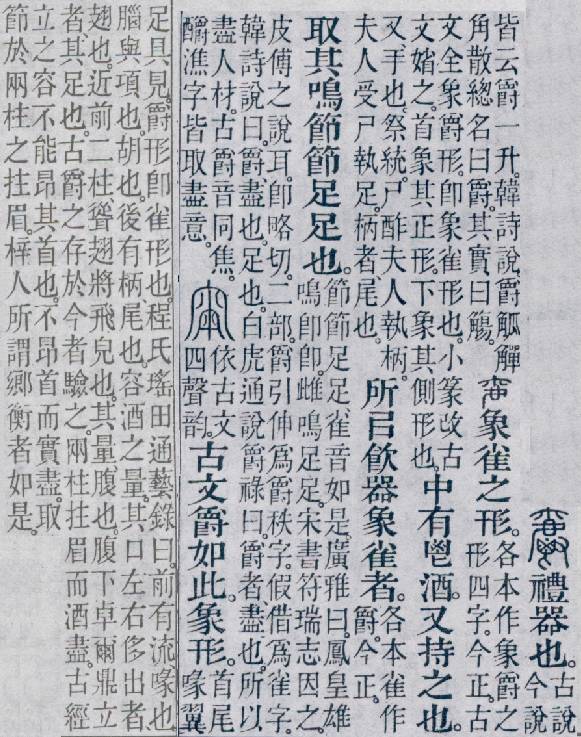 爵禮器也。古說
今說
皆云爵一升。韓詩說。爵觚觶
角散總名曰爵。其實曰觴。
象雀之形。各本作象爵之
形四字。今正。古
文全象爵形。卽象雀形也。小篆改古
文㜷之。首象其正形。下象其側形也。
中有鬯酒。又持之也。
又、手也。祭統。尸酢夫人執柄。
夫人受尸執足。柄者、尾也。
所㠯飮器象雀者。各本雀作
爵。今正。
取其鳴節節足足也。
節節足足、雀音如是。廣雅曰。鳳皇雄
鳴卽卽。雌鳴足足。宋書符瑞志因之。
皮傅之說耳。卽略切。二部。爵引伸爲爵秩字。假借爲雀字。
韓詩說曰。爵盡也。足也。白虎通說爵祿曰。爵者、盡也。所以
盡人材。古爵音同焦。
釂潐字皆取盡意。
依古文
四聲韵。
古文爵如此。象形。首尾
喙翼
足具見。爵形卽雀形也。程氏瑤田通藝錄曰。前有流、喙也。
腦與項也。胡也。後有柄、尾也。容酒之量。其口左右侈出者、
翅也。近前二柱、聳翅將飛皃也。其量、腹也。腹下卓爾鼎立
者、其足也。古爵之存於今者驗之。兩柱拄眉而酒盡。古經
立之容不能昂其首也。不昂首而實盡。取
節於兩柱之拄眉。梓人所謂鄉衡者如是。